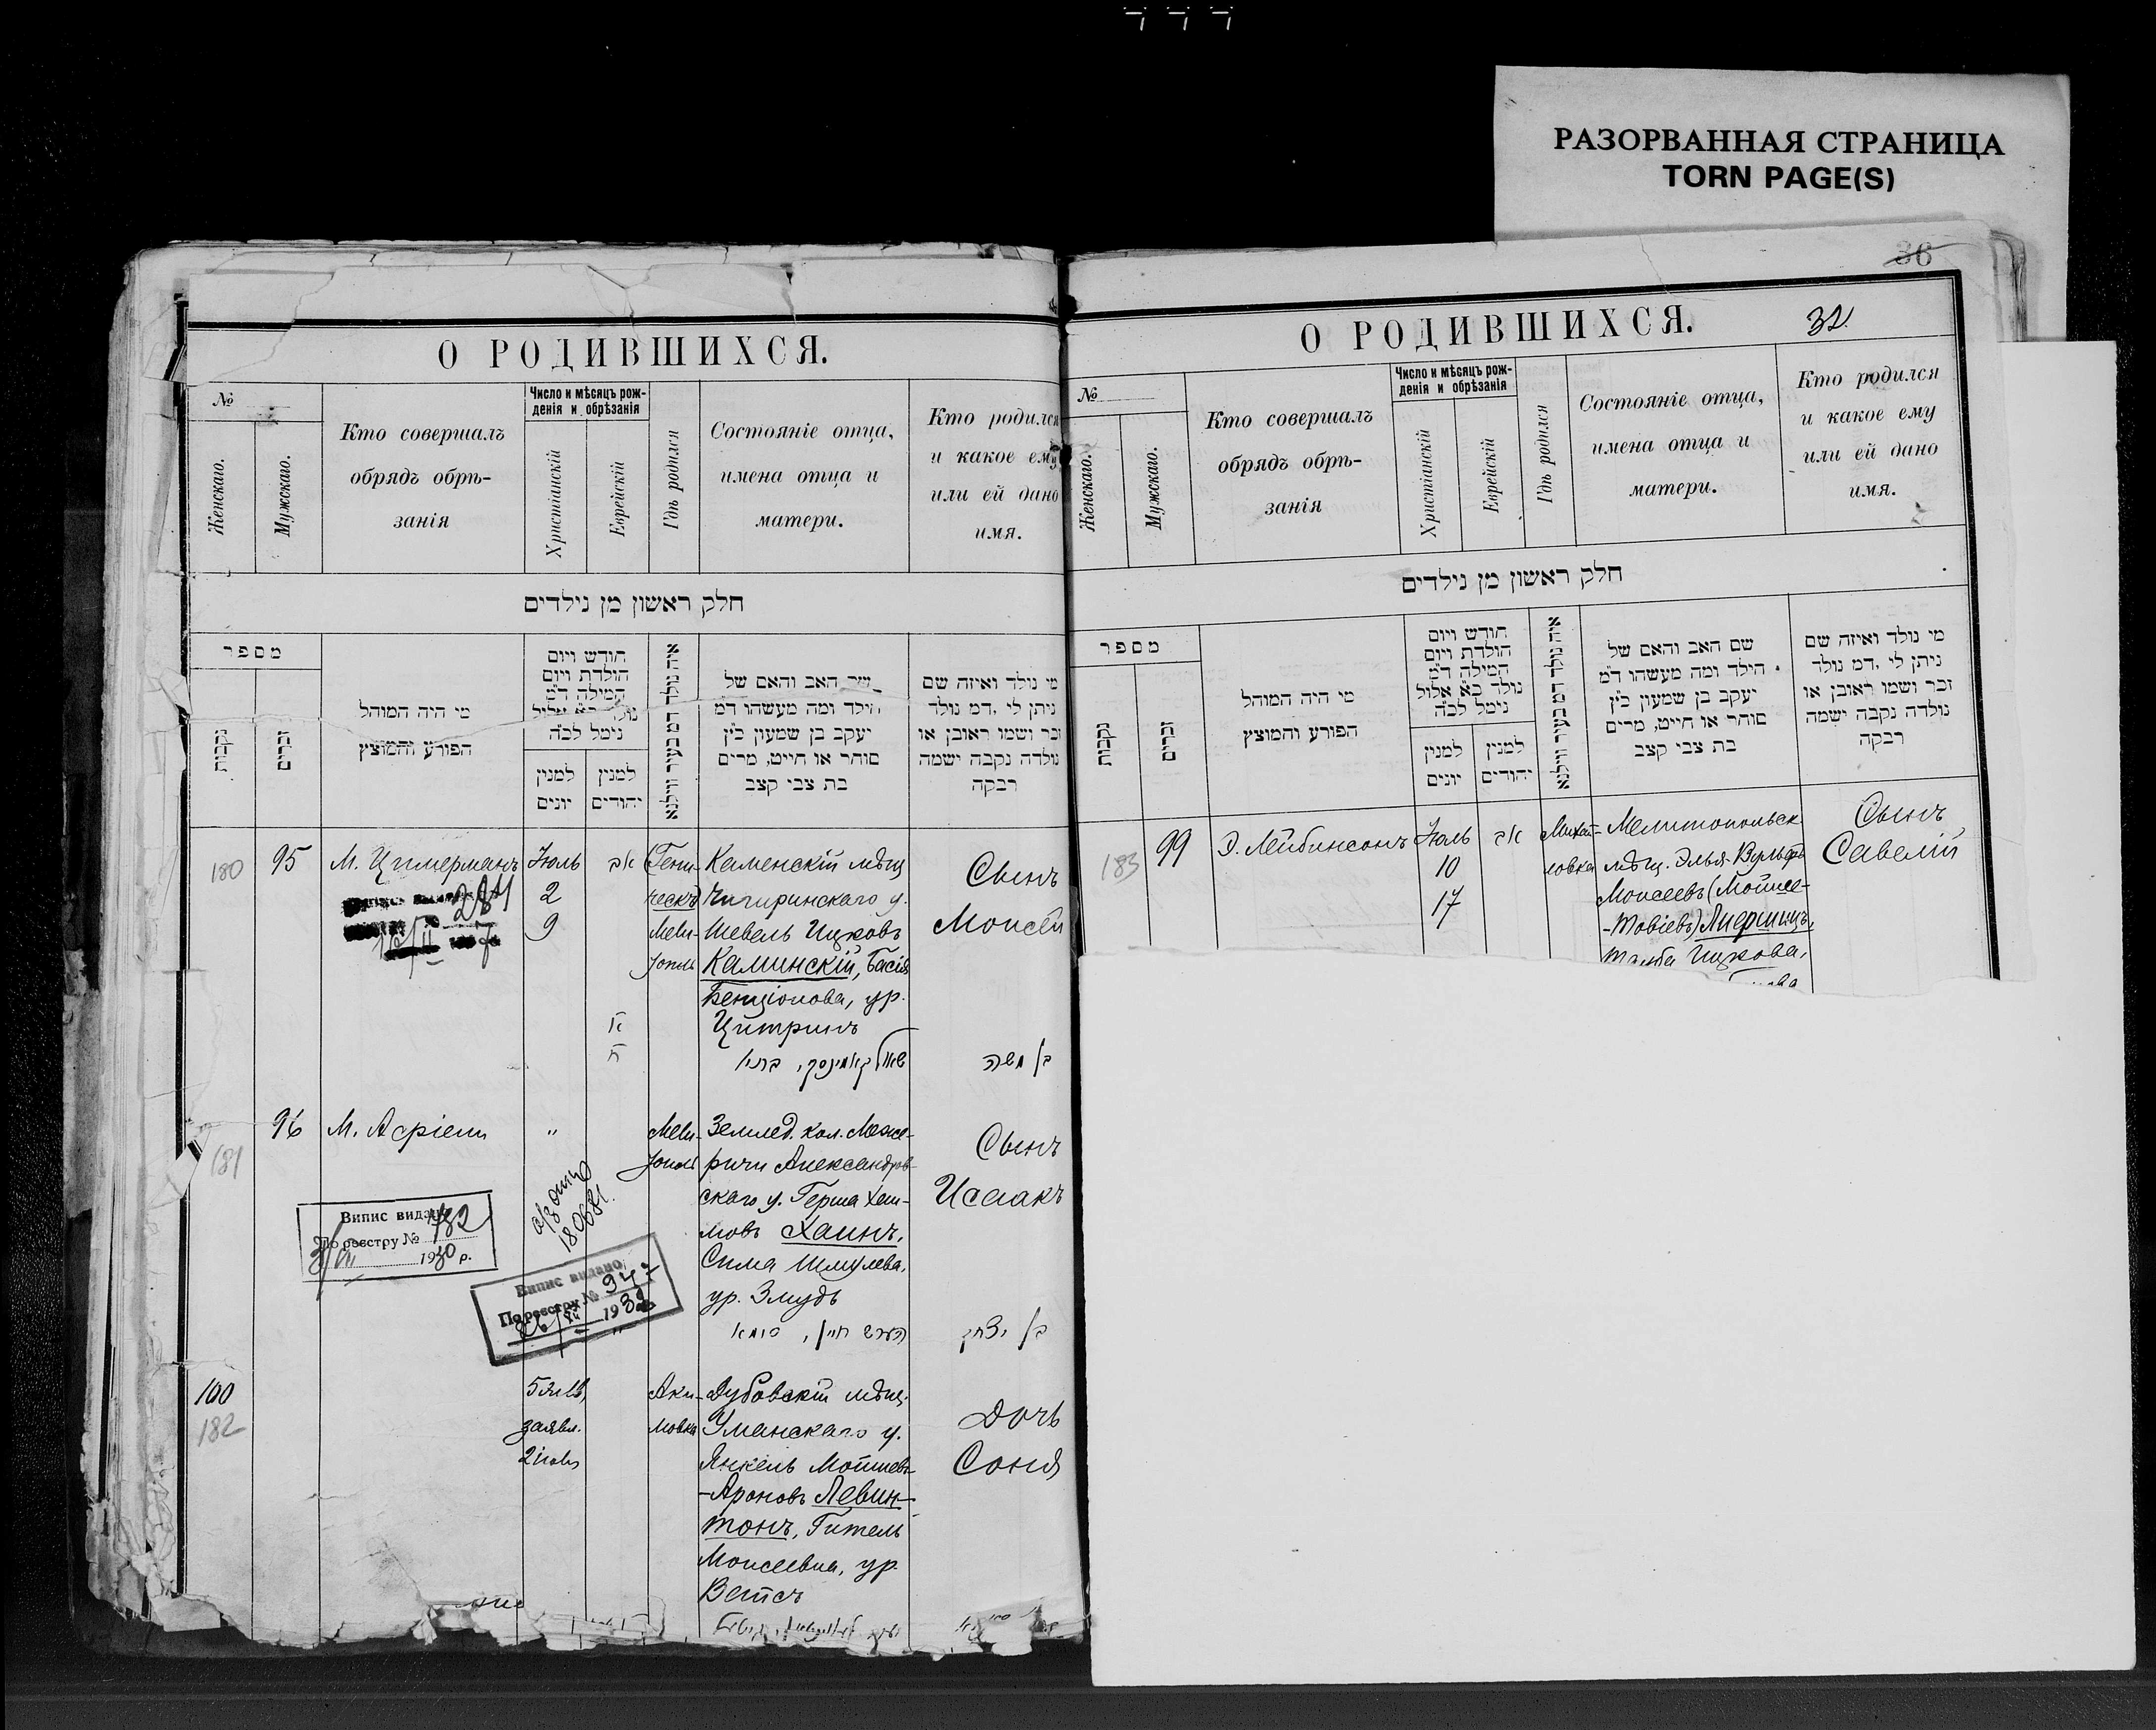 РАЗОРВАННАЯ СТРАНИЦА
TORN PAGE(S)
О РОДИВШИХСЯ.
№
Женскаго.
Мужскаго.
Кто совершалъ
обрядъ обрѣ-
занія
Число и мѣсяцъ рож-
денія и обрѣзанія
Христіанскій
Еврейскій
Гдѣ родился
Состояніе отца,
имена отца и
матери.
Кто родился
и какое ему
или ей дано
имя.
חלק ראשון מן נילדים
מספר
נקבות
זכרים
מי היה המוהל
הפורע והמוצץ
חודש ויום
הולדת ויום
המילה ד״מ
נולד כ״א אלול
נימל לכ״ה
למנין
יונים
למנין
יהודים
איה נולד דמ בעיר ווילנא
שם האב והאם של
הילד ומה מעשהו ד״מ
יעקב בן שמעון כ״ץ
סוחר או חייט, מרים
בת צבי קצב
מי נולד ואיזה שם
ניתן לי ,דמ נולד
זכר ושמו ראובן או
נולדה נקבה ישמה
רבקה
180
95
М. Цимерманъ
Іюль
2
9
אב
Гени-
ческъ
Мели-
Каменскій мѣщ
Чигиринскаго у.
Шевель Ицковъ
Каминскій, Бася
Бенціонова, ур.
Цитринъ
Сынъ
Моисей
בן משה
181
96
М. Асріели
"
Мели-
Землед. кол. Меже-
ричи Александров-
скаго у. Герша Хаи-
мовъ Хаинъ,
Сима Шмулева,
ур. Змудь
הערש חיין, סימא
Сынъ
Исаакъ
בן יצחק
Випис видано
По реєстру № 782
1930 р.
18068/.
Випис видано
По реєстру № 947
193
100
182
заявл.
Аки-
мовка
Дубовскій мѣщ.
Уманскаго у.
Янкель Мошкевъ
-Ароновъ Левин-
тонъ, Гитель
Моисеевна, ур.
Вейсъ
Дочь
Соня
36
О РОДИВШИХСЯ.
32.
№
Женскаго.
Мужскаго.
Кто совершалъ
обрядъ обрѣ-
занія
Число и мѣсяцъ рож-
денія и обрѣзанія
Христіанскій
Еврейскій
Гдѣ родился
Состояніе отца,
имена отца и
матери.
Кто родился
и какое ему
или ей дано
имя.
חלק ראשון מן נילדים
מספר
נקבות
זכרים
מי היה המוהל
הפורע והמוצץ
חודש ויום
הולדת ויום
המילה ד״מ
נולד כ״א אלול
נימל לכ״ה
למנין
יונים
למנין
יהודים
איה נולד דמ בעיר ווילנא
שם האב והאם של
הילד ומה מעשהו ד״מ
יעקב בן שמעון כ״ץ
סוחר או חייט, מרים
בת צבי קצב
מי נולד ואיזה שם
ניתן לי ,דמ נולד
זכר ושמו ראובן או
נולדה נקבה ישמה
רבקה
183
99
Э. Лейбинсонъ
Іюль
10
17
אב
Михай-
ловка
Мелитопольск.
мѣщ. Элья-Вульфъ
Моисеевъ (Мойше-
-Товіевъ)
Ицкова,
Сынъ
Савелій